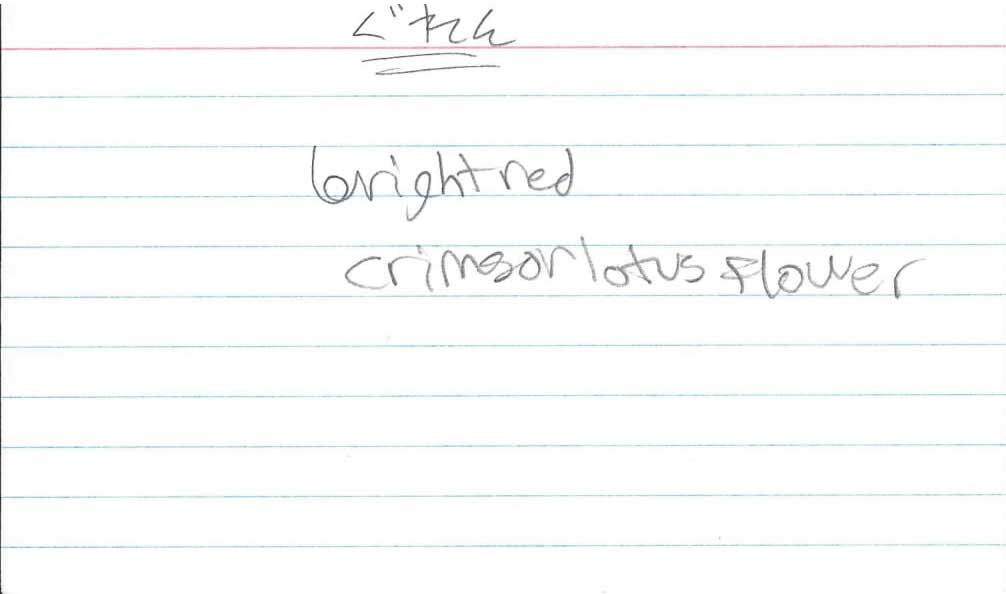 ぐれん
bright red
crimson lotus flower